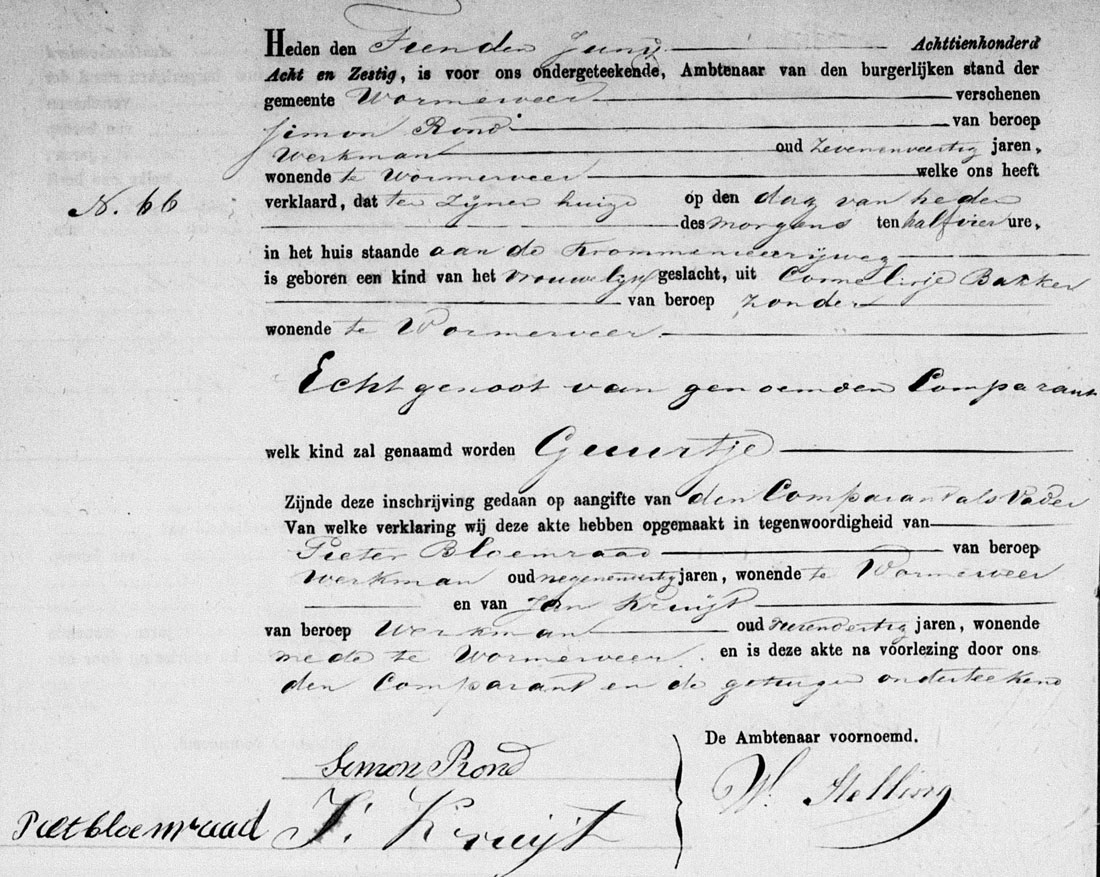 Heden den Tienden Junij Achttienhonderd
Acht en Zestig, is voor ons ondergeteekende, Ambtenaar van den burgerlijken stand der
gemeente Wormerveer verschenen
Simon Rond van beroep
Werkman oud Zevenenveertig jaren,
wonende te Wormerveer welke ons heeft
N. 66 verklaard, dat ten Zijnen huize op den dag van heden
des morgens ten half vier ure,
in het huis staande aan de Krommenieerijweg
is geboren een kind van het Vrouwelijk geslacht, uit Cornelisje Bakker
van beroep Zonder
wonende te Wormerveer
Echtgenoot van genoemden Comparant
welk kind zal genaamd worden Geuurtje
Zijnde deze inschrijving gedaan op aangifte van den Comparant als Vader
Van welke verklaring wij deze akte hebben opgemaakt in tegenwoordigheid van
Pieter Bloemraad van beroep
Werkman oud jaren, wonende te Wormerveer
en van Jan Kruijt
van beroep Werkman oud jaren, wonende
mede te Wormerveer. en is deze akte na voorlezing door ons
den Comparant en de getuigen onderteekend
De Ambtenaar voornoemd.
Simon Rond
W. Stelling
Piet bloemraad J. Kruijt